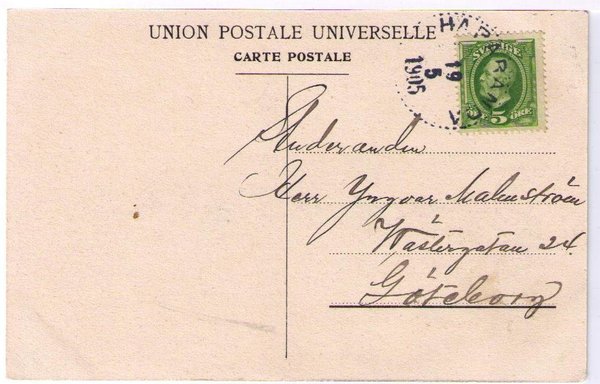 UNION POSTALE UNIVERSELLE
CARTE POSTALE
HAPARANDA
19
5
1905
SVERIGE
5 ÖRE
Studeranden
Herr Yngvar Malmström
Västergatan 24.
Göteborg